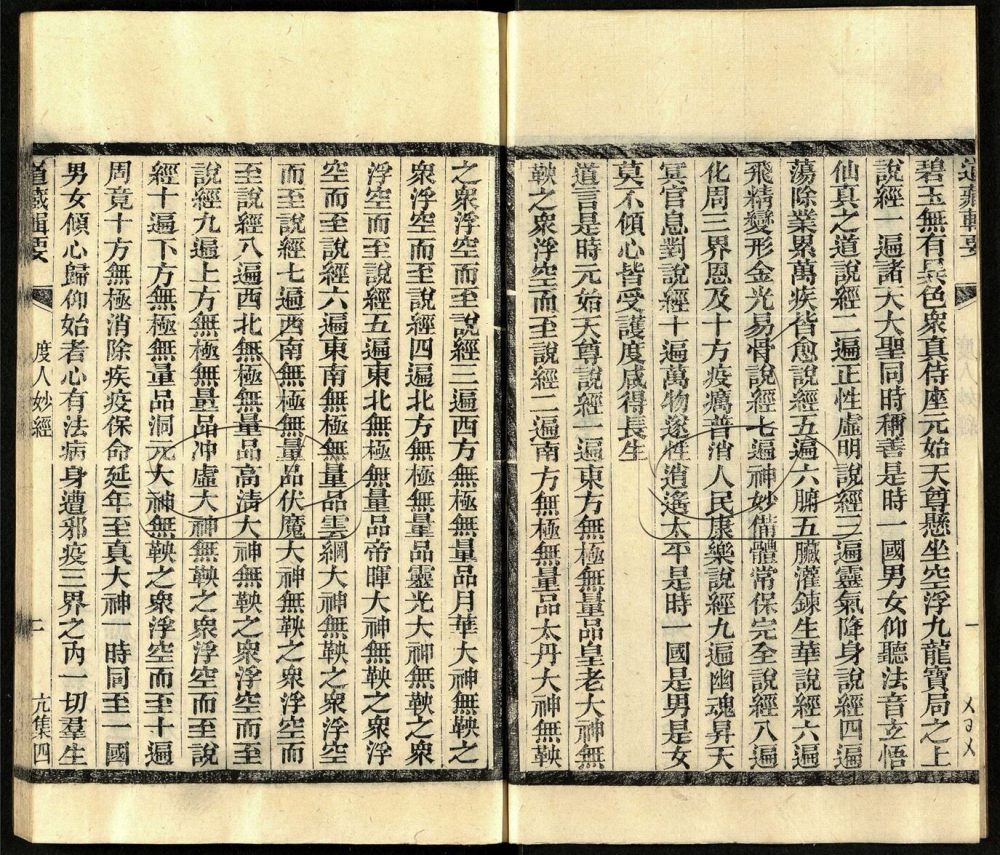 碧玉無有異色衆真侍座元始天尊懸坐空浮九龍寶局之上
說經一遍諸大大聖同時稱善是時一國男女仰聽法音立悟
仙真之道說經二遍正性虛明說經三遍靈氣降身說經四遍
蕩除業累萬疾皆愈說經五遍六腑五臟灌鍊生華說經六遍
飛精變形金光易骨說經七遍神妙備體常保完全說經八遍
化周三界恩及十方疫癘普消人民康樂說經九遍幽魂昇天
冥官息對說經十遍萬物遂性逍遙太平是時一國是男是女
莫不傾心皆受護度咸得長生
道言是時元始天尊說經一遍東方無極無量品皇老大神無
鞅之衆浮空而至說經二遍南方無極無量品太丹大神無鞅
之衆浮空而至說經三遍西方無極無量品月華大神無鞅之
衆浮空而至說經四遍北方無極無量品靈光大神無鞅之衆
浮空而至說經五遍東北無極無量品帝暉大神無鞅之衆浮
空而至說經六遍東南無極無量品雲綱大神無鞅之衆浮空
而至說經七遍西南無極無量品伏魔大神無鞅之衆浮空而
至說經八遍西北無極無量品高清大神無鞅之衆浮空而至
說經九遍上方無極無量品冲虛大神無鞅之衆浮空而至說
經十遍下方無極無量品洞元大神無鞅之衆浮空而至十遍
周竟十方無極消除疾疫保命延年至真大神一時同至一國
男女傾心歸仰始者心有法病身遭邪疫三界之內一切羣生
道藏輯要 度人妙經 二 亢集四